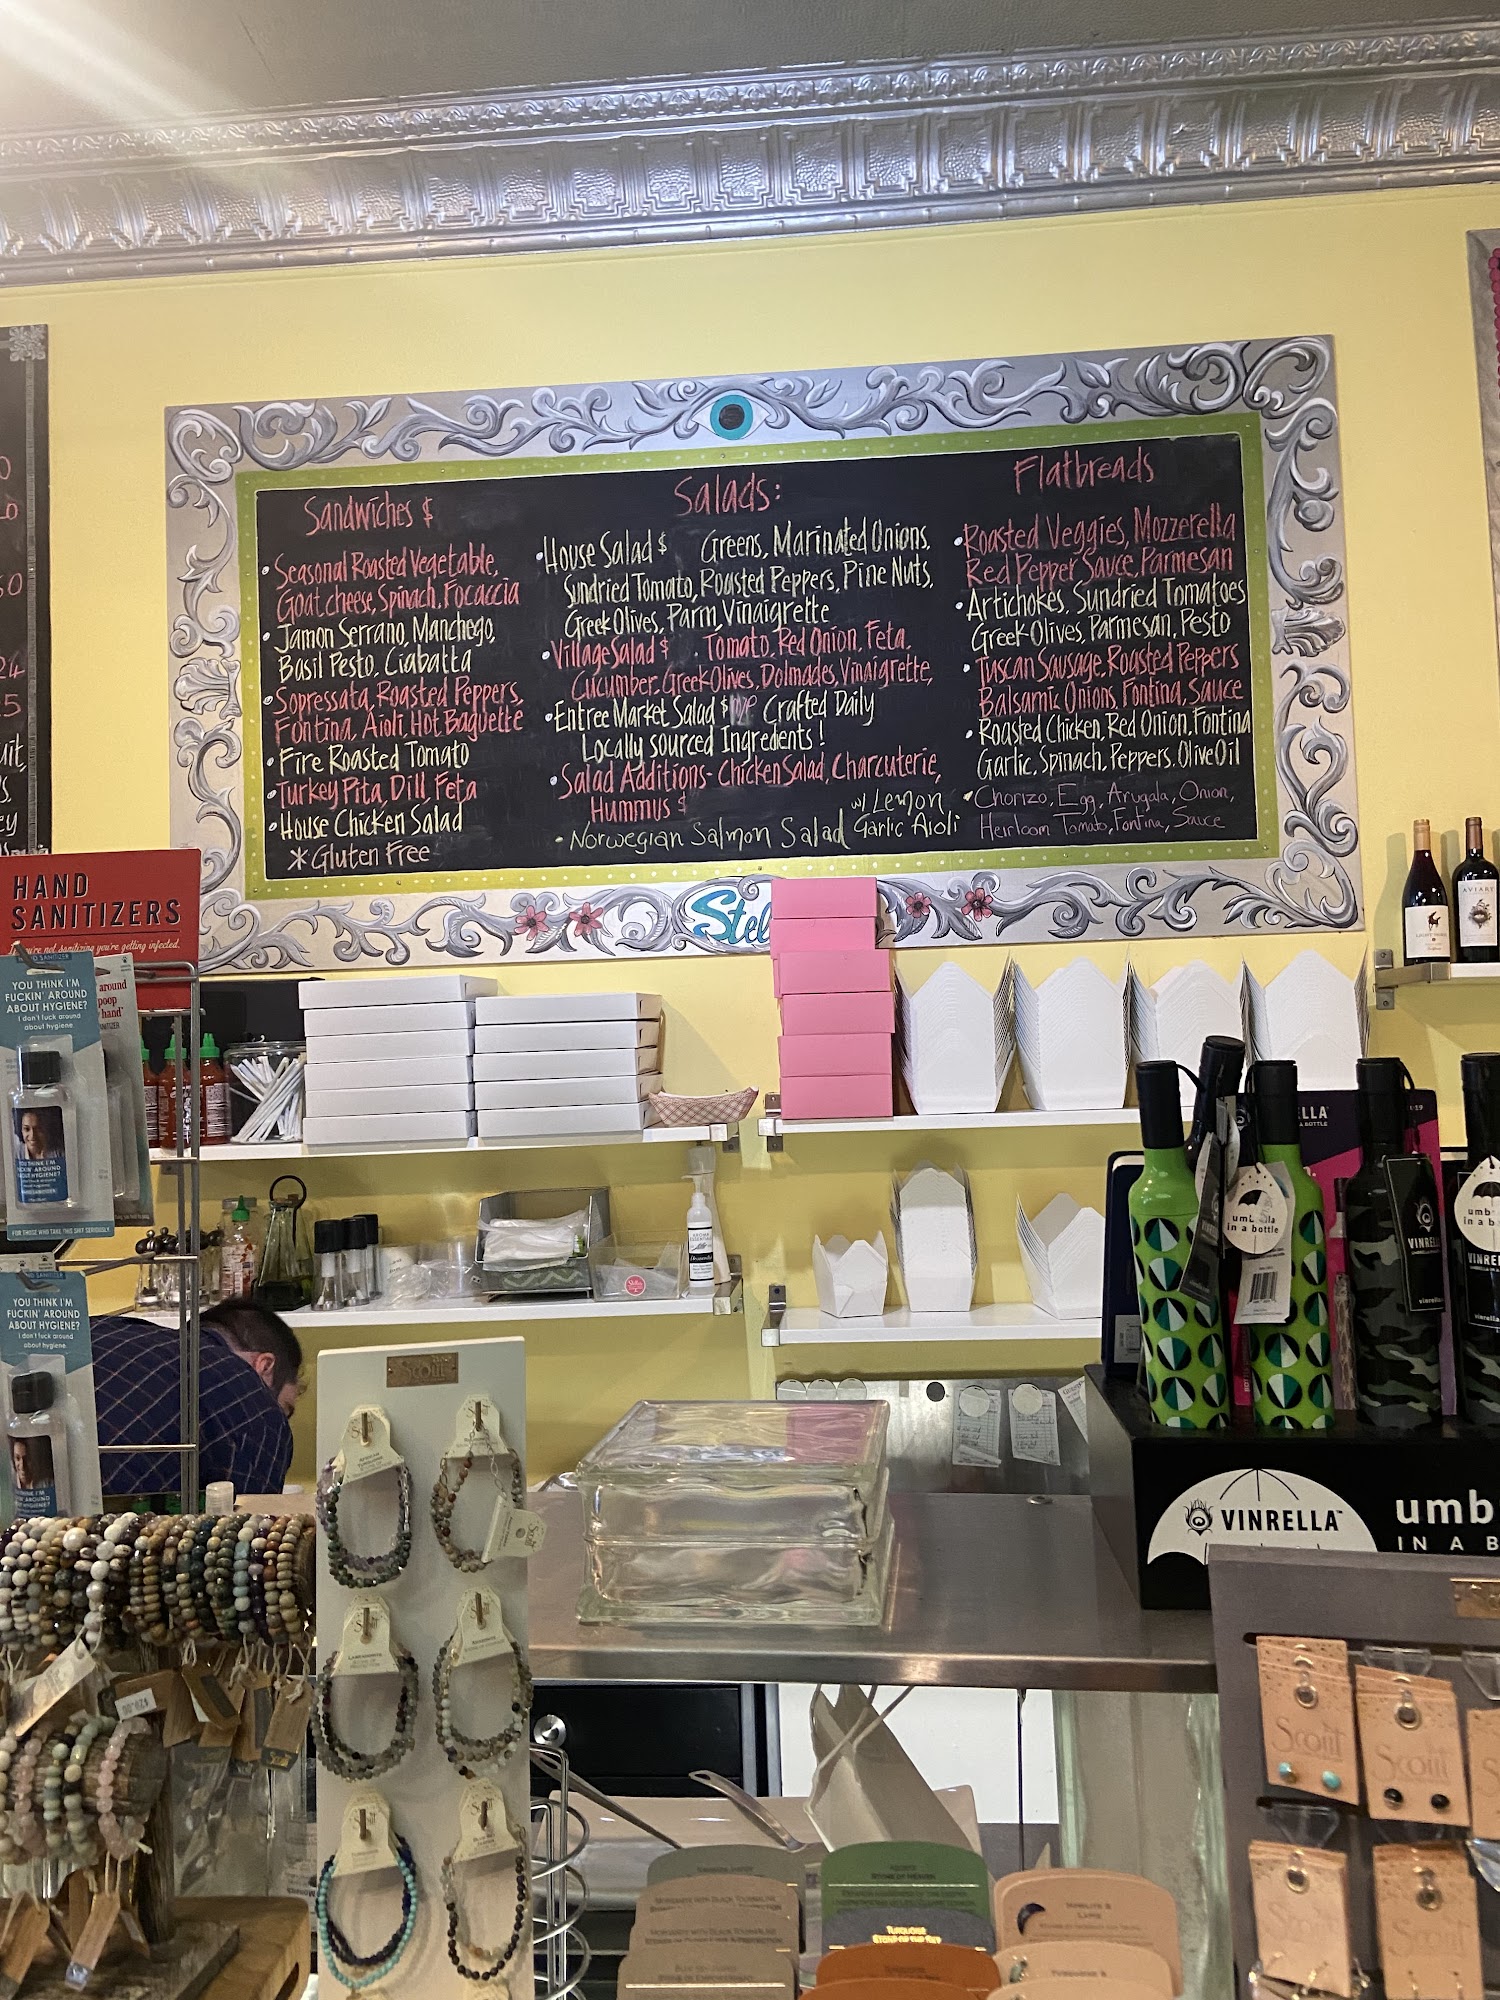 Sandwiches $
Seasonal Roasted Vegetable,
Goat cheese, Spinach, Focaccia
Jamon Serrano, Manchego,
Basil Pesto, Ciabatta
Sopressata, Roasted Peppers,
Fontina, Aioli, Hot Baguette
Fire Roasted Tomato
Turkey Pita, Dill, Feta
House Chicken Salad
*Gluten Free
Salads:
House Salad $ Greens, Marinated Onions,
Sundried Tomato, Roasted Peppers, Pine Nuts,
Greek Olives, Parm, Vinaigrette
Village Salad $ Tomato, Red Onion, Feta,
Cucumber, Greek Olives, Dolmades, Vinaigrette,
Entree Market Salad $ Crafted Daily
Locally sourced Ingredients!
Salad Additions- Chicken Salad, Charcuterie,
Hummus $
Norwegian Salmon Salad w/ Lemon
Garlic Aioli
Flatbreads
Roasted Veggies, Mozzerella
Red Pepper Sauce, Parmesan
Artichokes, Sundried Tomatoes
Greek Olives, Parmesan, Pesto
Tuscan Sausage, Roasted Peppers
Balsamic Onions, Fontina, Sauce
Roasted Chicken, Red Onion, Fontina
Garlic, Spinach, Peppers, Olive Oil
Chorizo, Egg, Arugala, Onion,
Heirloom Tomato, Fontina, Sauce
Stel
HAND
SANITIZERS
If you're not sanitizing you're getting infected.
YOU THINK I'M
FUCKIN' AROUND
ABOUT HYGIENE?
I don't fuck around
about hygiene
around
poop
hand"
FOR THOSE WHO TAKE THIS SHIT SERIOUSLY
YOU THINK I'M
FUCKIN' AROUND
ABOUT HYGIENE?
I don't fuck around
about hygiene.
AVIARY
umbrella
in a bottle
VINRELLA
VINRELLA
vinrella
VINRELLA™
umb
IN A B
Scout
Scout
Scout
TURQUOISE
STONE OF THE SKY